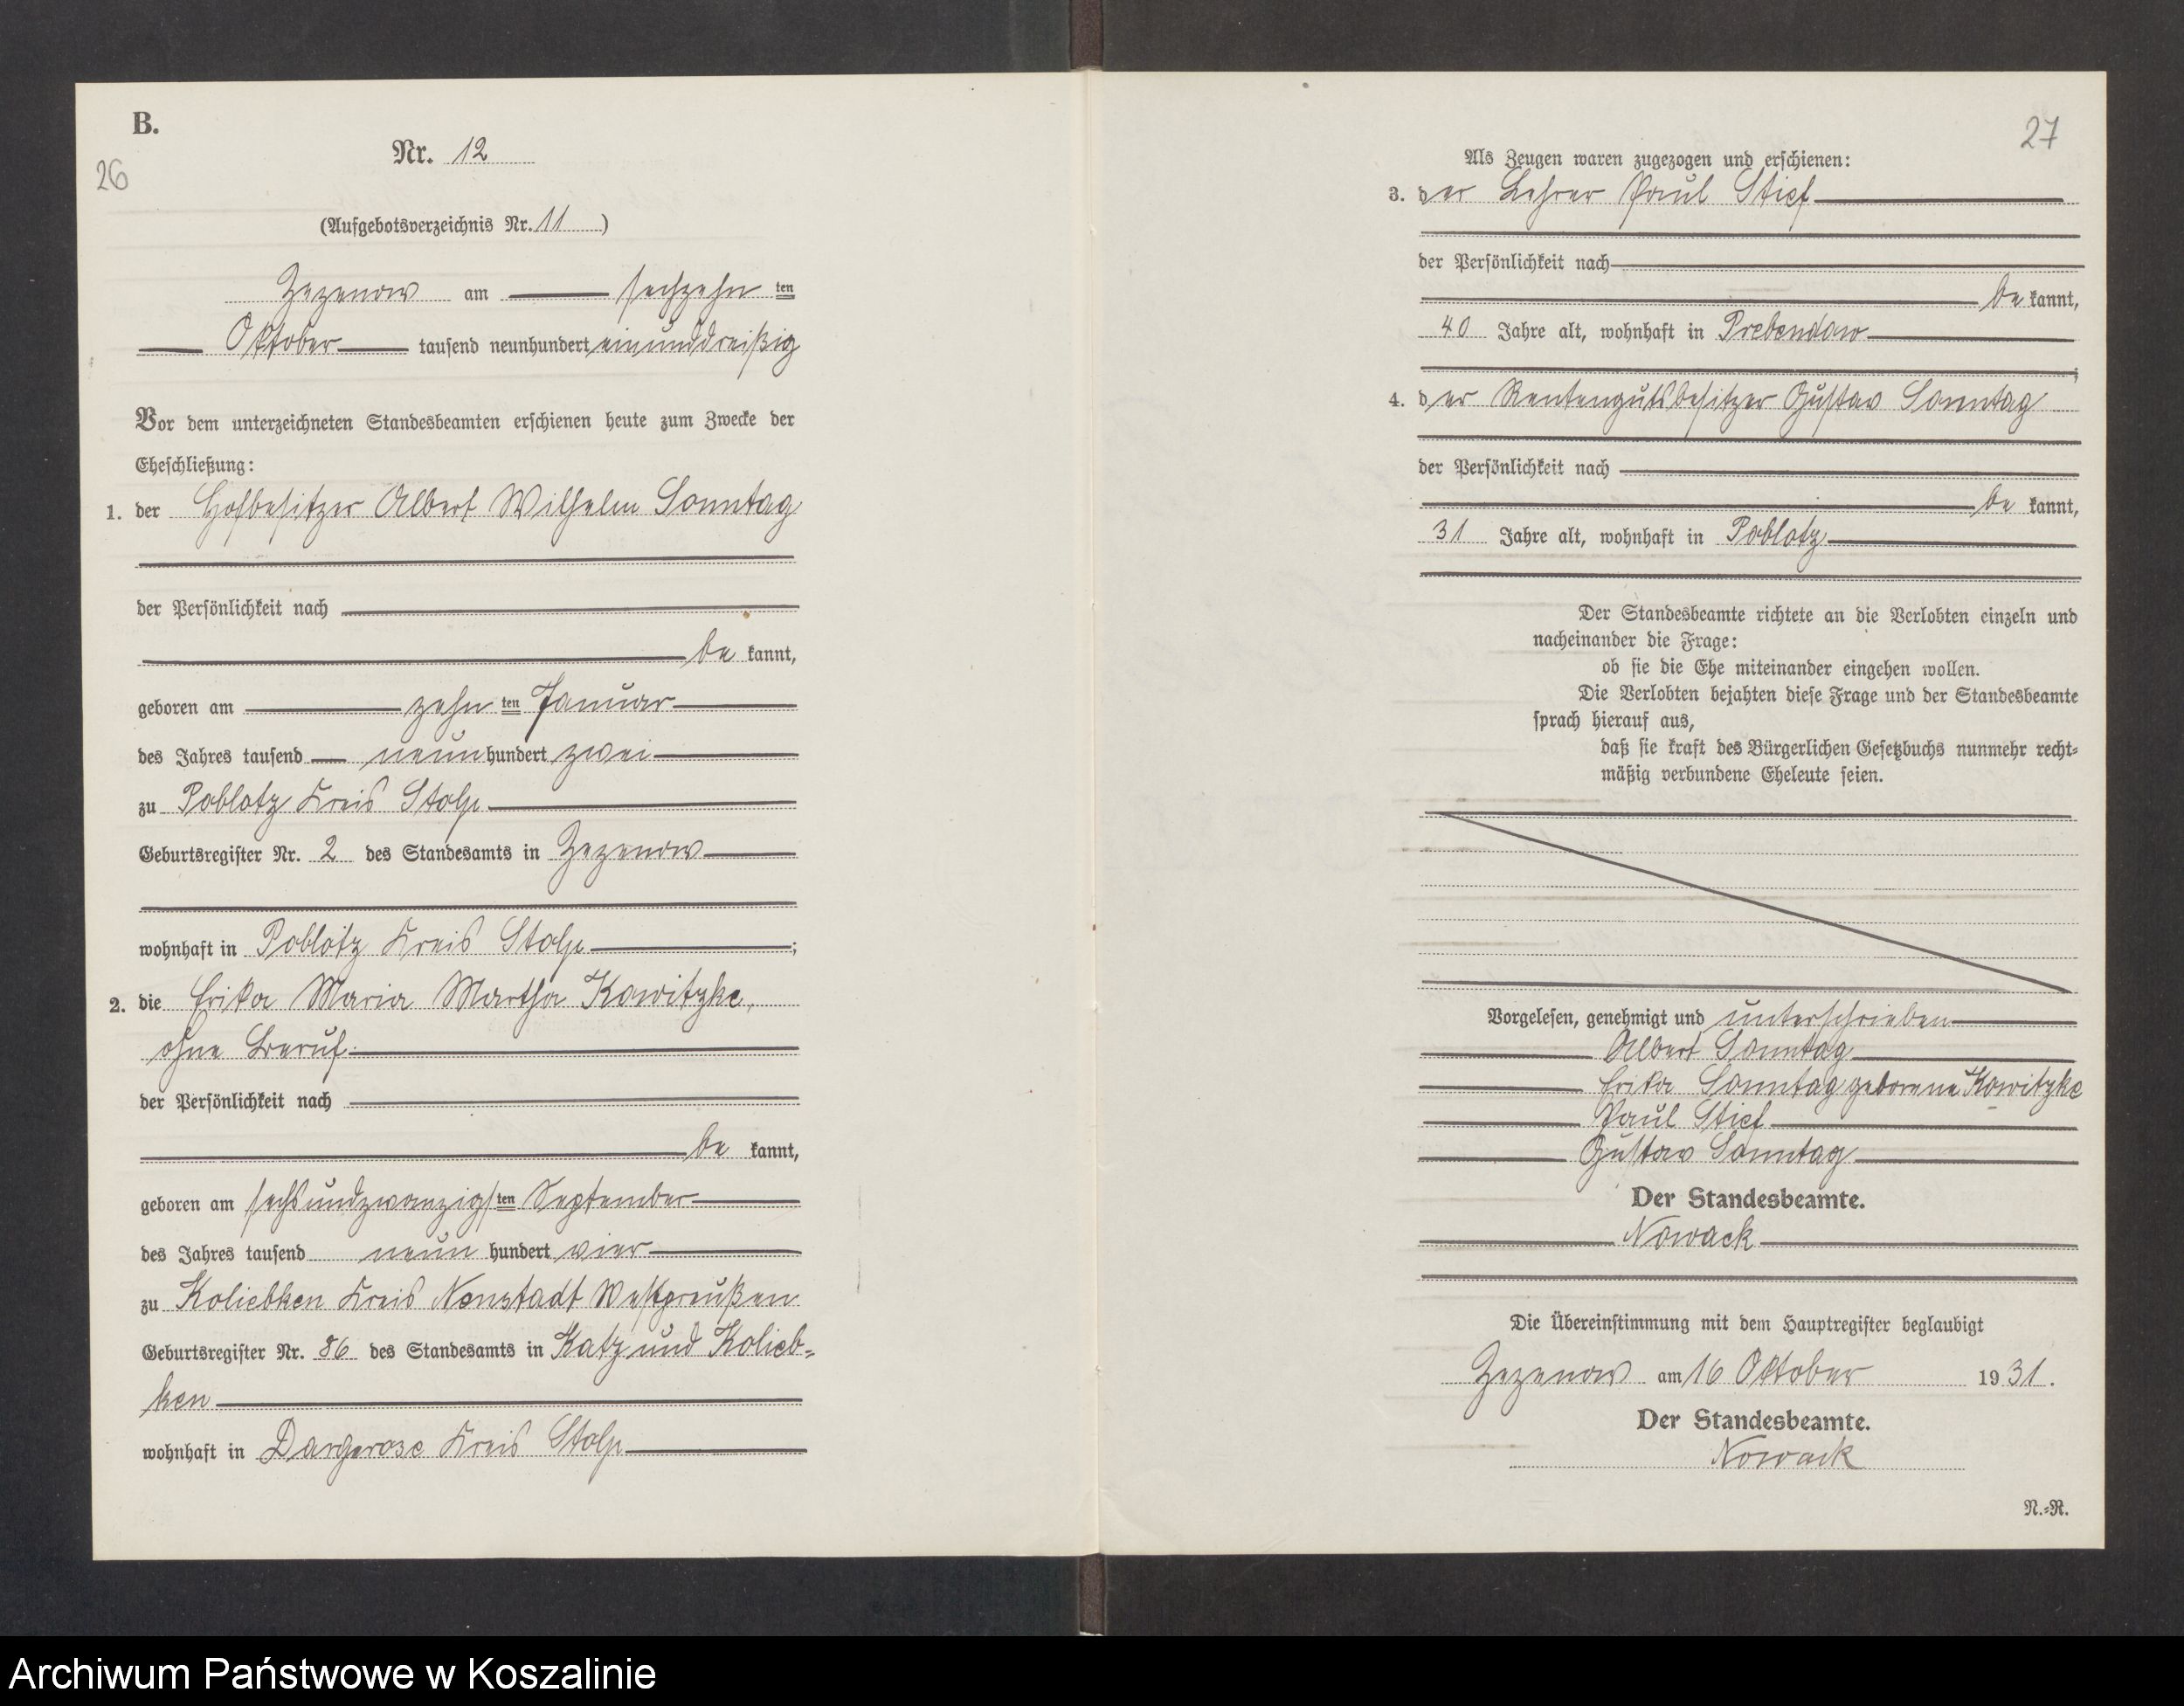 B.
Nr. 12
26
(Aufgebotsverzeichnis Nr. 11)
Zezenow am sechzehn ten
Oktober tausend neunhundert einunddreißig
Vor dem unterzeichneten Standesbeamten erschienen heute zum Zwecke der
Eheschließung:
1. der Hofbesitzer Albert Wilhelm Sonntag
der Persönlichkeit nach
be kannt,
geboren am zehn ten Januar
des Jahres tausend neun hundert zwei
zu Poblotz Kreis Stolp
Geburtsregister Nr. 2 des Standesamts in Zezenow
wohnhaft in Poblotz Kreis Stolp;
2. die Erika Maria Martha Kowitzke,
ohne Beruf.
der Persönlichkeit nach
be kannt,
geboren am sechsundzwanzigs ten September
des Jahres tausend neun hundert vier
zu Koliebken Kreis Neustadt Westpreußen
Geburtsregister Nr. 86 des Standesamts in Katz und Kolieb-
ken
wohnhaft in Dargerose Kreis Stolp
27
Als Zeugen waren zugezogen und erschienen:
3. der Lehrer Paul Stief
der Persönlichkeit nach
be kannt,
40 Jahre alt, wohnhaft in Prebendow
;
4. der Rentengutsbesitzer Gustav Sonntag
der Persönlichkeit nach
be kannt,
31 Jahre alt, wohnhaft in Poblotz
Der Standesbeamte richtete an die Verlobten einzeln und
nacheinander die Frage:
ob sie die Ehe miteinander eingehen wollen.
Die Verlobten bejahten diese Frage und der Standesbeamte
sprach hierauf aus,
daß sie kraft des Bürgerlichen Gesetzbuchs nunmehr recht-
mäßig verbundene Eheleute seien.
Vorgelesen, genehmigt und unterschrieben
Albert Sonntag
Erika Sonntag geborene Kowitzke
Paul Stief
Gustav Sonntag
Der Standesbeamte.
Nowack
Die Übereinstimmung mit dem Hauptregister beglaubigt
Zezenow am 16 Oktober 1931.
Der Standesbeamte.
Nowack
N.-R.
Archiwum Państwowe w Koszalinie